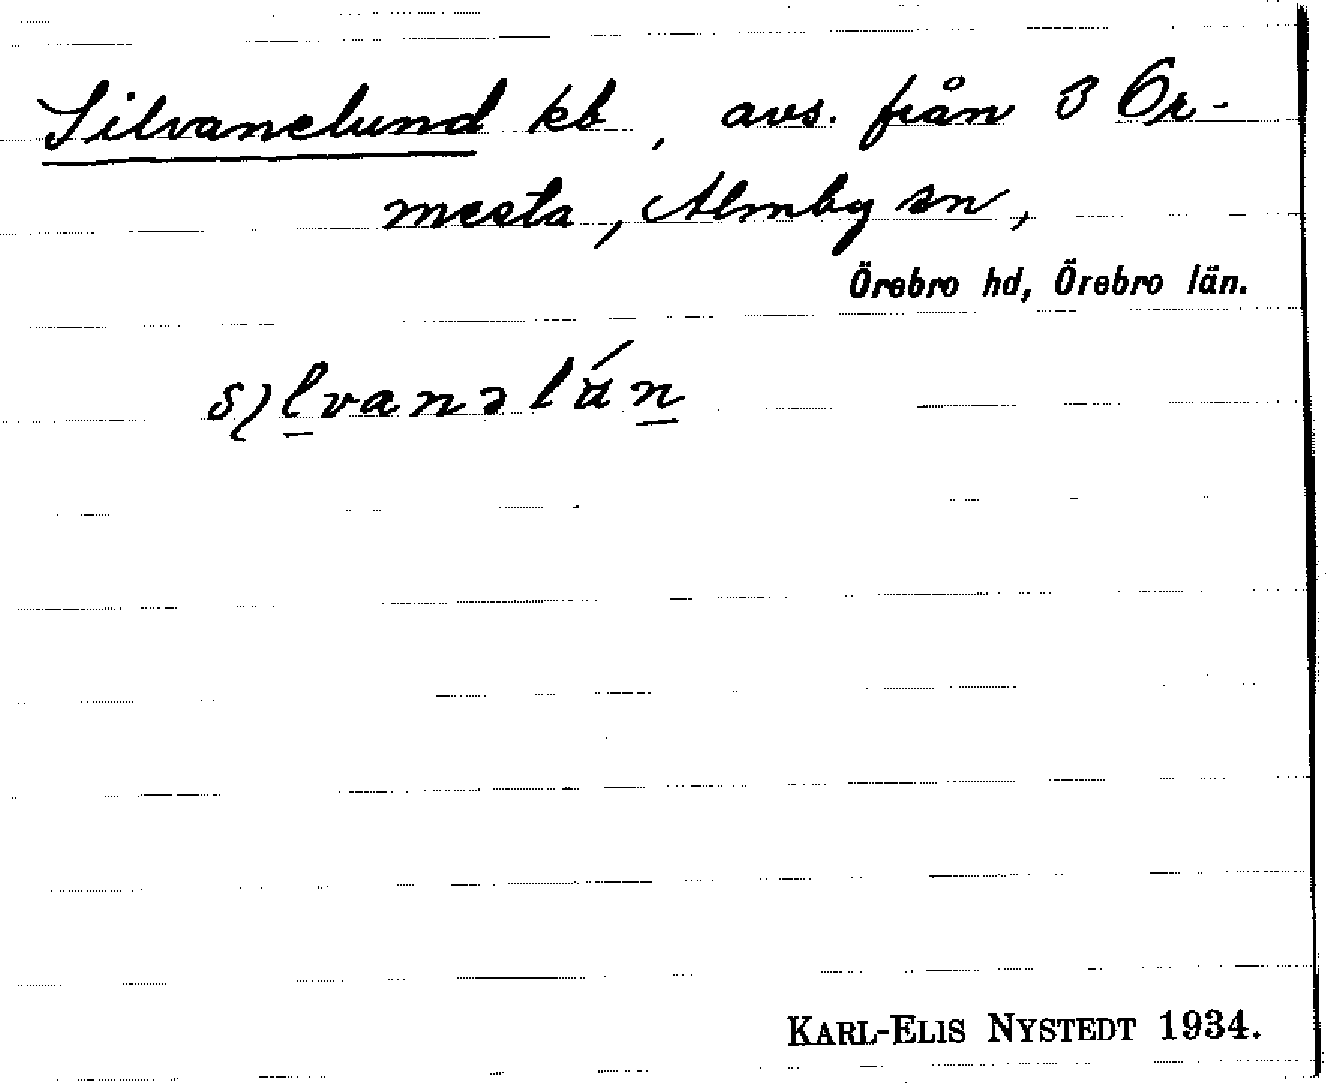 Silvanelund kb, avs. från 3 Or-
mesta, Almby sn,
Örebro hd, Örebro län.
KARL-ELIS NYSTEDT 1934.